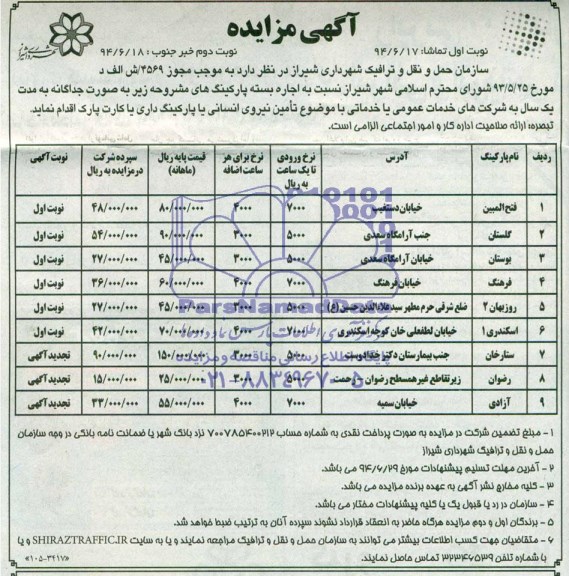 آگهی مزایده
نوبت اول تماشا: ۹۴/۶/۱۷
نوبت دوم خبر جنوب: ۹۴/۶/۱۸
سازمان حمل و نقل و ترافیک شهرداری شیراز در نظر دارد به موجب مجوز ۴۵۶۹/ش الف د
مورخ ۹۳/۵/۲۵ شورای محترم اسلامی شهر شیراز نسبت به اجاره بسته پارکینگ های مشروحه زیر به صورت جداگانه به مدت
یک سال به شرکت های خدمات عمومی یا خدماتی با موضوع تأمین نیروی انسانی یا پارکینگ داری یا کارت پارک اقدام نماید.
تبصره: ارائه صلاحیت اداره کار و امور اجتماعی الزامی است.
ردیف نام پارکینگ آدرس نرخ ورودی تا یک ساعت به ریال نرخ برای هر ساعت اضافه قیمت پایه ریال (ماهانه) سپرده شرکت در مزایده به ریال نوبت آگهی
۱ فتح المبین خیابان دستغیب ۷۰۰۰ ۴۰۰۰ ۸۰/۰۰۰/۰۰۰ ۴۸/۰۰۰/۰۰۰ نوبت اول
۲ گلستان جنب آرامگاه سعدی ۵۰۰۰ ۳۰۰۰ ۹۰/۰۰۰/۰۰۰ ۵۴/۰۰۰/۰۰۰ نوبت اول
۳ بوستان خیابان آرامگاه سعدی ۵۰۰۰ ۳۰۰۰ ۴۵/۰۰۰/۰۰۰ ۲۷/۰۰۰/۰۰۰ نوبت اول
۴ فرهنگ خیابان فرهنگ ۷۰۰۰ ۴۰۰۰ ۶۰/۰۰۰/۰۰۰ ۳۶/۰۰۰/۰۰۰ نوبت اول
۵ روزبهان ۲ ضلع شرقی حرم مطهر سید علاءالدین حسین (ع) ۵۰۰۰ ۳۰۰۰ ۴۵/۰۰۰/۰۰۰ ۲۷/۰۰۰/۰۰۰ نوبت اول
۶ اسکندری ۱ خیابان لطفعلی خان کوچه اسکندری ۷۰۰۰ ۴۰۰۰ ۷۰/۰۰۰/۰۰۰ ۴۲/۰۰۰/۰۰۰ نوبت اول
۷ ستارخان جنب بیمارستان دکتر خدادوست ۵۰۰۰ ۱۵۰/۰۰۰/۰۰۰ ۹۰/۰۰۰/۰۰۰ تجدید آگهی
۸ رضوان زیر تقاطع غیر همسطح رضوان - رحمت ۵۰۰۰ ۳۰۰۰ ۲۵/۰۰۰/۰۰۰ ۱۵/۰۰۰/۰۰۰ تجدید آگهی
۹ آزادی خیابان سمیه ۷۰۰۰ ۴۰۰۰ ۵۵/۰۰۰/۰۰۰ ۳۳/۰۰۰/۰۰۰ تجدید آگهی
ParsNamadData
۰۲۱-۸۸۳۴۹۶۷۰-۵
۱ - مبلغ تضمین شرکت در مزایده به صورت پرداخت نقدی به شماره حساب ۷۰۰۷۸۵۴۰۰۲۱۲ نزد بانک شهر یا ضمانت نامه بانکی در وجه سازمان
حمل و نقل و ترافیک شهرداری شیراز
۲ - آخرین مهلت تسلیم پیشنهادات مورخ ۹۴/۶/۲۹ می باشد.
۳ - کلیه مخارج نشر آگهی به عهده برنده مزایده می باشد.
۴ - سازمان در رد یا قبول یک یا کلیه پیشنهادات مختار می باشد.
۵ - برندگان اول و دوم مزایده هرگاه حاضر به انعقاد قرارداد نشوند سپرده آنان به ترتیب ضبط خواهد شد.
۶ - متقاضیان جهت کسب اطلاعات بیشتر می توانند به سازمان حمل و نقل و ترافیک مراجعه نمایند و یا به سایت SHIRAZTRAFFIC.IR و یا
با شماره تلفن ۳۲۳۴۶۵۳۹ تماس حاصل نمایند.
«۱۰۵-۳۴۱۷»